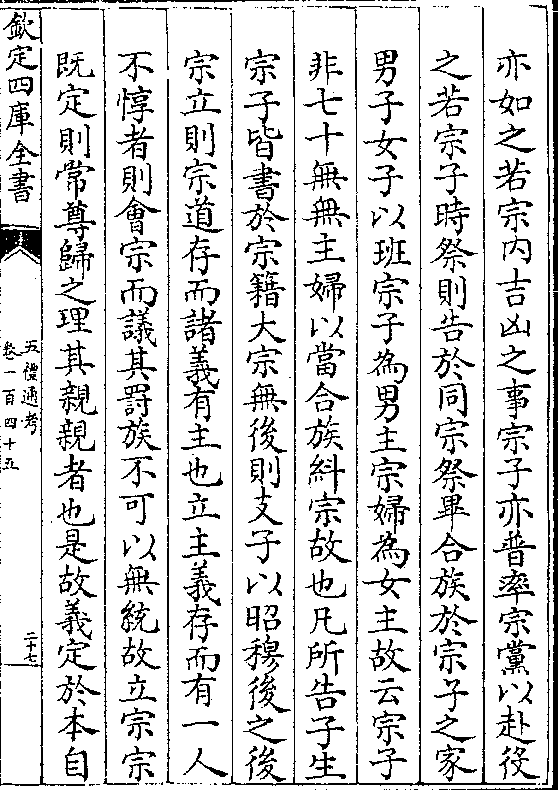 亦如之若宗内吉凶之事宗子亦普率宗黨以赴役
之若宗子時祭則告於同宗祭畢合族於宗子之家
男子女子以班宗子為男主宗婦為女主故云宗子
非七十無無主婦以當合族糾宗故也凡所告子生
宗子皆書於宗籍大宗無後則支子以昭穆後之後
宗立則宗道存而諸義有主也立主義存而有一人
不惇者則會宗而議其罰族不可以無統故立宗宗
既定則常尊歸之理其親親者也是故義定於本自
欽定四庫全書
五禮通考
卷一百四十五
二十七